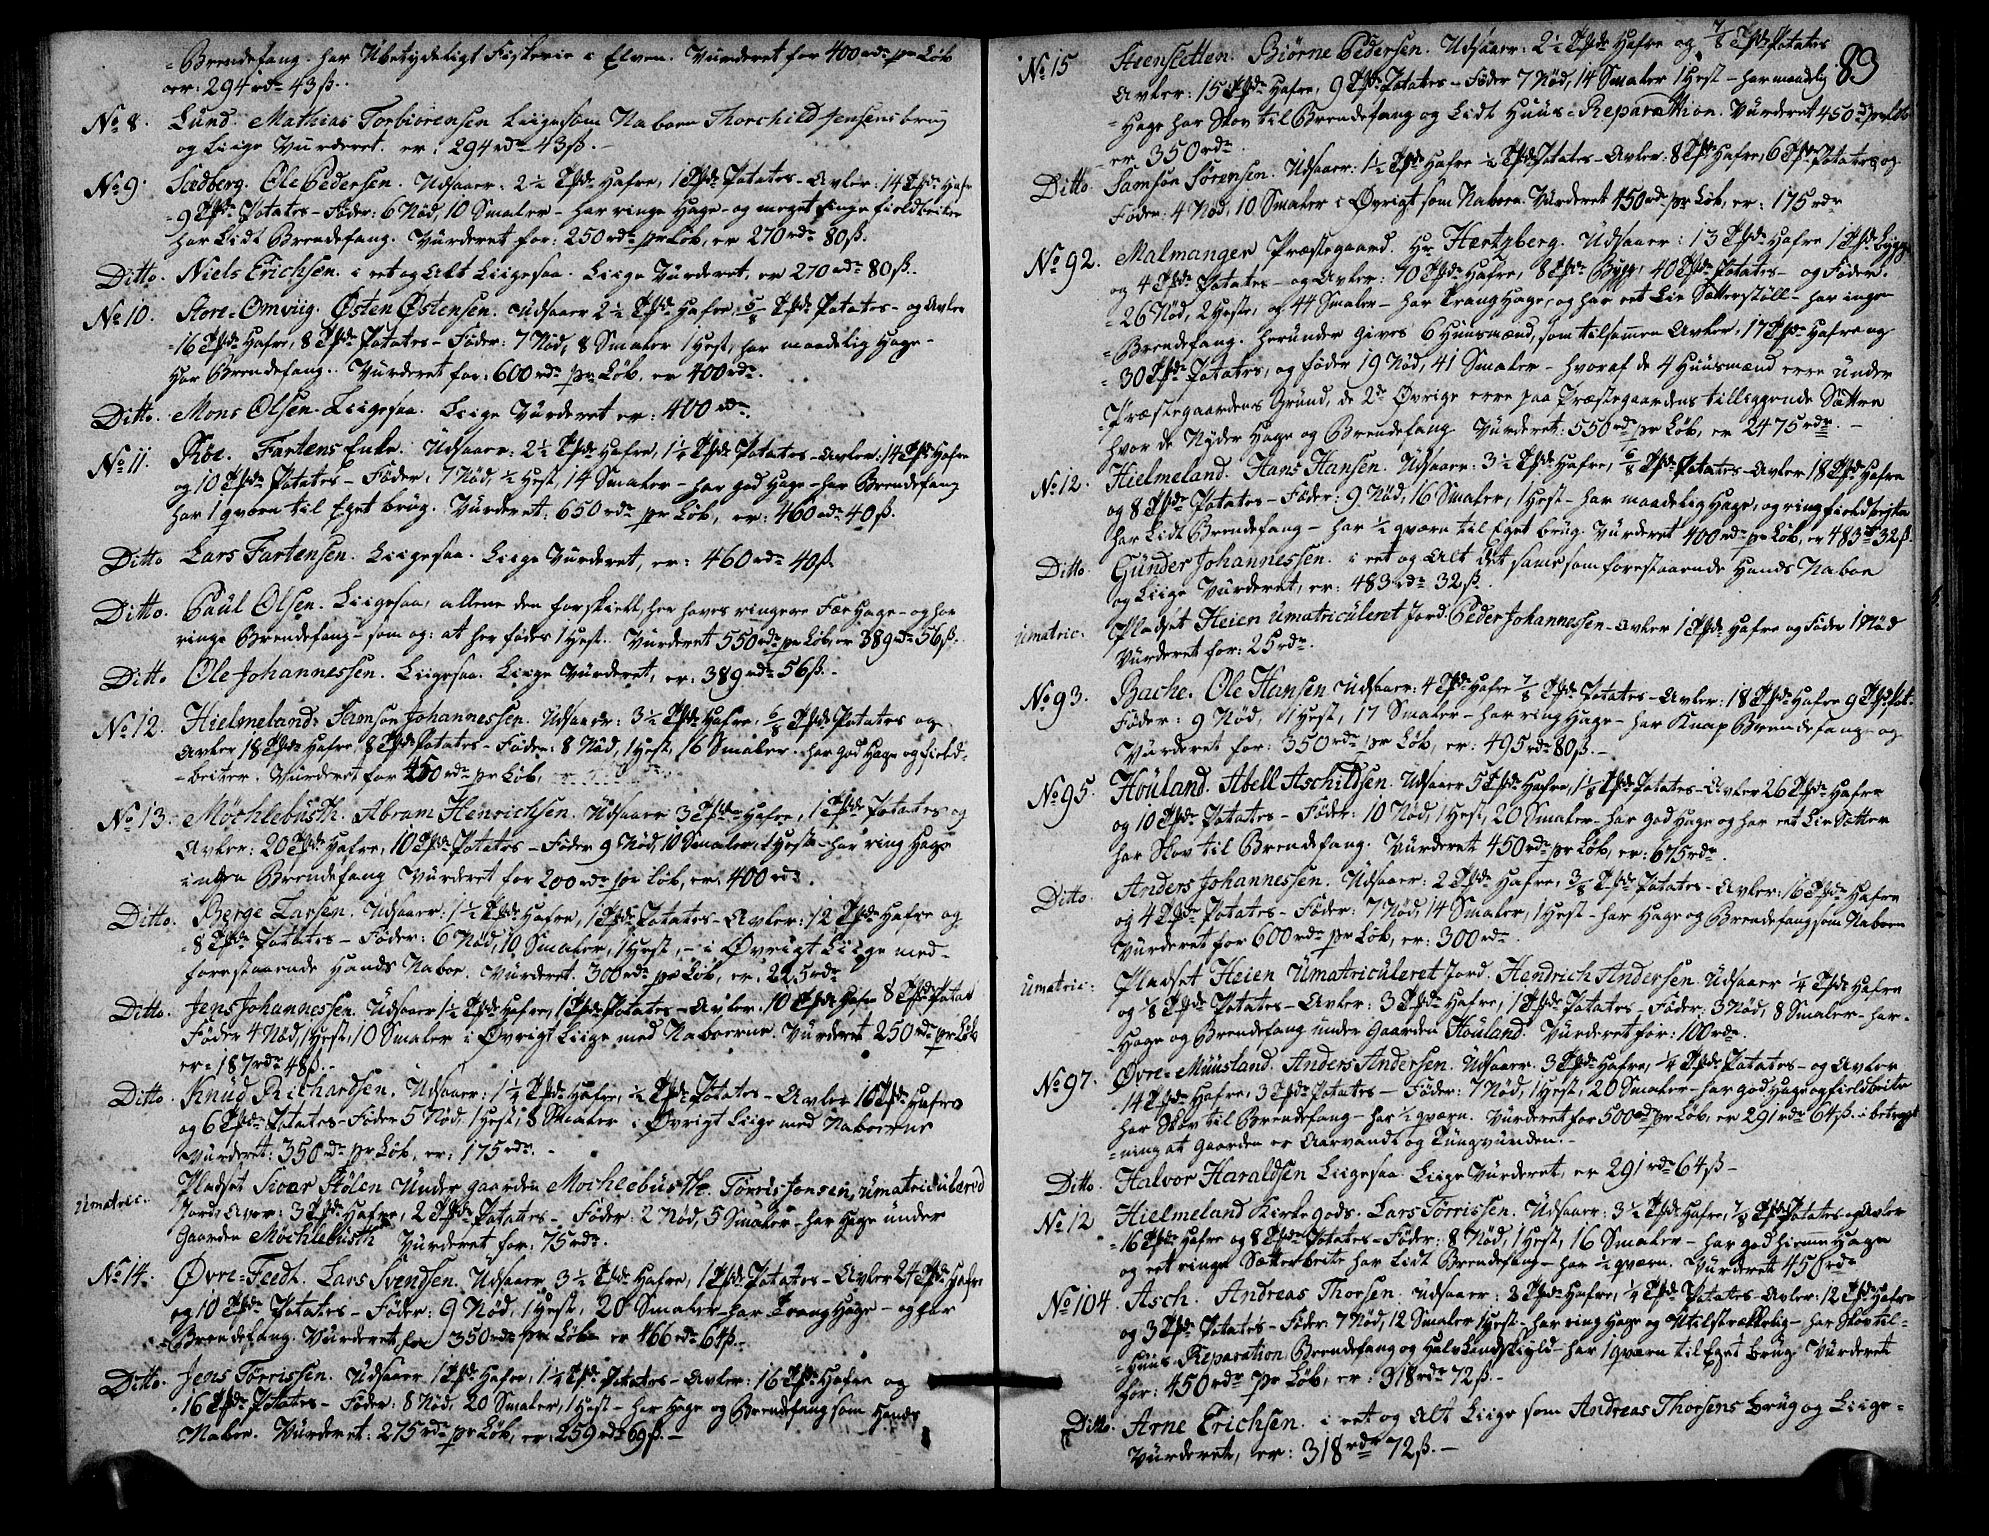 -Brendefang- har Ubetydeligt Fiskerie i Elven. Vurderet for 400 rdr pr Løb
er: 294 rdr 43 ß.
No 8. Lund. Mathias Torbiørensen Liigesom Naboen Thorchild Jensens brug
og Liige Vurderet. er: 294 rdr 43 ß.-
No 9. Sædberg. Ole Pedersen. Udsaaer: 2½ Tdr Hafre, 1 Tde Potates- Avler: 14 Tdr Hafre
9 Tdr Potates- Føder: 6 Nød, 10 Smaler- har ringe Hage- og meget ringe fieldbeiter
har Lidt Brendefang. Vurderet for: 250 rdr pr Løb, er 270 rdr 80 ß.
Ditto. Niels Erichsen. i et og Alt Liigesaa. Liige Vurderet, er 270 rdr 80 ß.
No 10. Store-Omvig. Østen Østensen. Udsaaer 2½ Tdr Hafre, 5/8 Tde Potates- og Avler
16 Tdr Hafre, 8 Tdr Potates- Føder: 7 Nød, 8 Smaler 1 Hest, har maadelig Hage-
Har Brendefang. Vurderet for: 600 rdr pr Løb, er 400 rdr.
Ditto. Mons Olsen. Liigesaa. Liige Vurderet er: 400 rdr.
No 11. Røe. Fartens Enke. Udsaaer: 2½ Tdr Hafre, 1¼ Tde Potates- Avler: 14 Tdr Hafre
og 10 Tdr Potates- Føder: 7 Nød, ½ Hest, 14 Smaler- har god Hage- har Brendefang
har 1 qværn til Eget brug. Vurderet: 650 rdr pr Løb, er: 460 rdr 40 ß.
Ditto Lars Fartensen. Liigesaa. Liige Vurderet, er: 460 rdr 40 ß.
Ditto. Paul Olsen. Liigesaa, allene den forskiell, her haves ringere Fæe Hage- og har
ringe Brendefang- som og: at her fødes 1 Hest. Vurderet 550 rdr pr Løb, er 389 rdr 56 ß.
Ditto Ole Johannessen. Liigesaa. Liige Vurderet, er: 389 rdr 56 ß.-
No 12. Hielmeland: Samson Johannessen. Udsaaer: 3½ Tdr Hafre, 6/8 Tde Potates og
Avler 18 Tdr Hafre, 8 Tdr Potates- Føder: 8 Nød, 1 Hest, 16 Smaler. har god Hage og field-
-beiter. Vurderet for 450 rdr pr Løb,
No 13. Møchlebusth. Abram Henrichsen. Udsaaer 3 Tdr Hafre, 1 Tde Potates og
Avler: 20 Tdr Hafre, 10 Tdr Potates- Føder 9 Nød, 10 Smaler, 1 Hest- har ring Hage
ingen Brendefang Vurderet for 200 rdr pr Løb, er: 400 rdr.
Ditto. Berge Larsen. Udsaaer: 1½ Tdr Hafre, 1 Tde Potates- Avler: 12 Tdr Hafre og
8 Tdr Potates- Føder: 6 Nød, 10 Smaler, 1 Hest,- i Øvrigt Liige med-
forestaaende Hands Naboe. Vurderet. 300 rdr pr Løb, er: 225 rdr
Ditto. Jens Johannessen. Udsaaer 1½ Tdr Hafre, 1 Tde Potates- Avler: 10 Tdr Hafre 8 Tdr Potat
Føder 4 Nød, 1 Hest, 10 Smaler i Øvrigt Liige med Naboerne. Vurderet 250 rdr pr Løb
er 187 rdr 48 ß.-
Ditto. Knud Richardsen. Udsaaer: 1¼ Tdr Hafre, ½ Tde Potates- Avler 16 Tdr Hafre
og 6 Tdr Potates- Føder 5 Nød, 1 Hest, 8 Smaler i Øvrigt Liige med Naboerne
Vurderet: 350 rdr pr Løb, er: 175 rdr.-
Umatric. Pladset Sivar Stølen Under gaarden Mochlebusth. Tørris Jonsen, umatriculered
Jord, Avler: 3 Tdr Hafre, 2 Tdr Potates- Føder: 2 Nød, 5 Smaler- har Hage under
Gaarden Møchlebusth Vurderet for: 75 rdr.
No 14. Øvre-Feedt. Lars Svendsen. Udsaaer 3½ Tdr Hafre, 1 Tde Potates- Avler 24 Tdr Hafre
og 10 Tdr Potates- Føder: 9 Nød, 1 Hest, 20 Smaler- har Trang Hage- og har
Brendefang. Vurderet for 350 rdr pr Løb er 466 rdr 64 ß.-
Ditto. Jens Tørrissen. Udsaaer 1 Tde Hafre, 1¼ Tde Potates- Avler: 16 Tdr Hafre og
16 Tdr Potates- Føder: 8 Nød, 20 Smaler, 1 Hest- har Hage og Brendefang som Hands
Naboe. Vurderet: 275 rdr pr Løb, er: 259 rdr 69 ß.-
83
No 15 Steensletten. Biørne Pedersen. Udsaaer: 2½ Tdr Hafre og 7/8 Tde Potates
Avler: 15 Tdr Hafre, 9 Tdr Potates- Føder 7 Nød, 14 Smaler 1 Hest- har maadlig
-Hage har Skov til Brendefang og Lidt Huus-Reparathion. Vurderet 450 rdr pr Løb
er 350 rdr.
Ditto. Samson Sørensen. Udsaaer: 1½ Tdr Hafre ½ Tde Potates- Avler: 8 Tdr Hafre, 6 Tdr Potates og
Føder: 4 Nød, 10 Smaler i Øvrigt som Naboen. Vurderet 450 rdr pr Løb, er: 175 rdr
No 92. Malmanger Præstegaard. Hr Hertzberg. Udsaaer: 13 Tdr Hafre 1 Tde bygg
og 4 Tdr Potates- og Avler: 70 Tdr Hafre, 8 Tdr Bygg, 40 Tdr Potates- og Føder.
26 Nød, 2 Heste, og 44 Smaler- har Trang Hage, og har et Liv Sætterstøll- har ingen
-Brendefang. herunder haves 6 Huusmænd, som tilsamen Avler, 17 Tdr Hafre og
30 Tdr Potates, og føder 19 Nød, 41 Smaler- hvoraf de 4 Huusmænd ere under
Præstegaardens Grund, de 2de Øvrige ere paa Præstegaardens tilliggende Sættre
hvor de Nyder Hage og Brendefang Vurderet: 550 rdr pr Løb, er 2475 rdr.-
No 12. Hielmeland. Hans Hansen. Udsaaer: 3½ Tdr Hafre, 6/8 Tde Potates- Avler 18 Tdr Hafre
og 8 Tdr Potates- Føder: 9 Nød, 16 Smaler, 1 Hest- har maadelig Hage, og ring fieldbeite
har Lidt Brendefang- har ½ qværn til Eget brug. Vurderet 400 rdr pr Løb, er 483 rd 32 ß.
Ditto. Gunder Johannessen. i et og Alt det same som forestaaende Hands Naboe
og Liige Vurderet, er: 483 rdr 32 ß.
Umatric. Pladset Heien Umatriculeret Jord. Peder Johannessen- Avler 1 Tde Hafre og Føder 1 Nød
Vurderet for: 25 rdr.
No 93. Bache. Ole Hansen Udsaaer: 4 Tdr Hafre 7/8 Tde Potates- Avler: 18 Tdr Hafre 9 Tdr Pot.
Føder: 9 Nød, 1 Hest, 17 Smaler- har ring Hage- har Knap Brendefang- og
Vurderet for: 350 rdr pr Løb, er: 495 rdr 80 ß.-
No 95. Houland. Abell Aschildsen. Udsaaer 5 Tdr Hafre, 1 1/8 Tde Potates- Avler 26 Tdr Hafre
og 10 Tdr Potates- Føder: 10 Nød, 1 Hest, 20 Smaler- har god Hage og har et Liv Sætter
har Skov til Brendefang. Vurderet 450 rdr pr Løb, er: 675 rdr.
Ditto. Anders Johannessen. Udsaaer: 2 Tdr Hafre, 3/8 Tde Potates- Avler: 16 Tdr Hafre
og 4 Tdr Potates- Føder: 7 Nød, 14 Smaler, 1 Hest- har Hage og Brendefang som Naboen
Vurderet for 600 rdr pr Løb, er: 300 rdr.
Umatric: Pladset Heien Umatriculeret Jord. Hendrich Andersen. Udsaaer ¼ Tde Hafre
og 1/8 Tde Potates- Avler: 3 Tdr Hafre, 1 Tde Potates- Føder: 3 Nød, 8 Smaler- har.
-Hage og Brendefang under Gaarden Houland. Vurderet for: 100 rdr.
No 97. Øvre-Muusland. Anders Andersen. Udsaaer. 3 Tdr Hafre, ¼ Tde Potates- og Avler
14 Tdr Hafre, 3 Tdr Potates- Føder: 7 Nød, 1 Hest, 20 Smaler- har god Hage og fieldbeite
har Skov til Brendefang- har ½ qværn. Vurderet for 500 rdr pr Løb, er 291 rdr 64 ß. i betragt
-ning at Gaarden er Aarvandt og Tungvunden.-
Ditto. Halvor Haraldsen Liigesaa. Liige Vurderet, er 291 rdr 64 ß-
No 12 Hielmeland Kirkegods. Lars Tørrissen. Udsaaer: 3½ Tdr Hafre, 7/8 Tde Potates og Avler
16 Tdr Hafre og 8 Tdr Potates- Føder: 8 Nød, 1 Hest, 16 Smaler- har god hieme Hage
og et ringe Sætterbeite har Lidt Brendefang- har ½ qværn. Vurderet 450 rdr
No 104. Asch. Andreas Thorsen. Udsaaer: 3 Tdr Hafre, ¼ Tde Potates- Avler: 12 Tdr Hafre
og 3 Tdr Potates- Føder: 7 Nød, 12 Smaler 1 Hest- har ring Hage og Utilstrekkelig- har Skov til-
-Huus-Reparation Brendefang og halv Landskyld- har 1 qværn til Eget brug Vurderet
for: 450 rdr pr Løb, er: 318 rdr 72 ß.-
Ditto. Arne Erichsen. i et og Alt Liige som Andreas Thorsens brug og Liige-
Vurderet, er: 318 rdr 72 ß.-